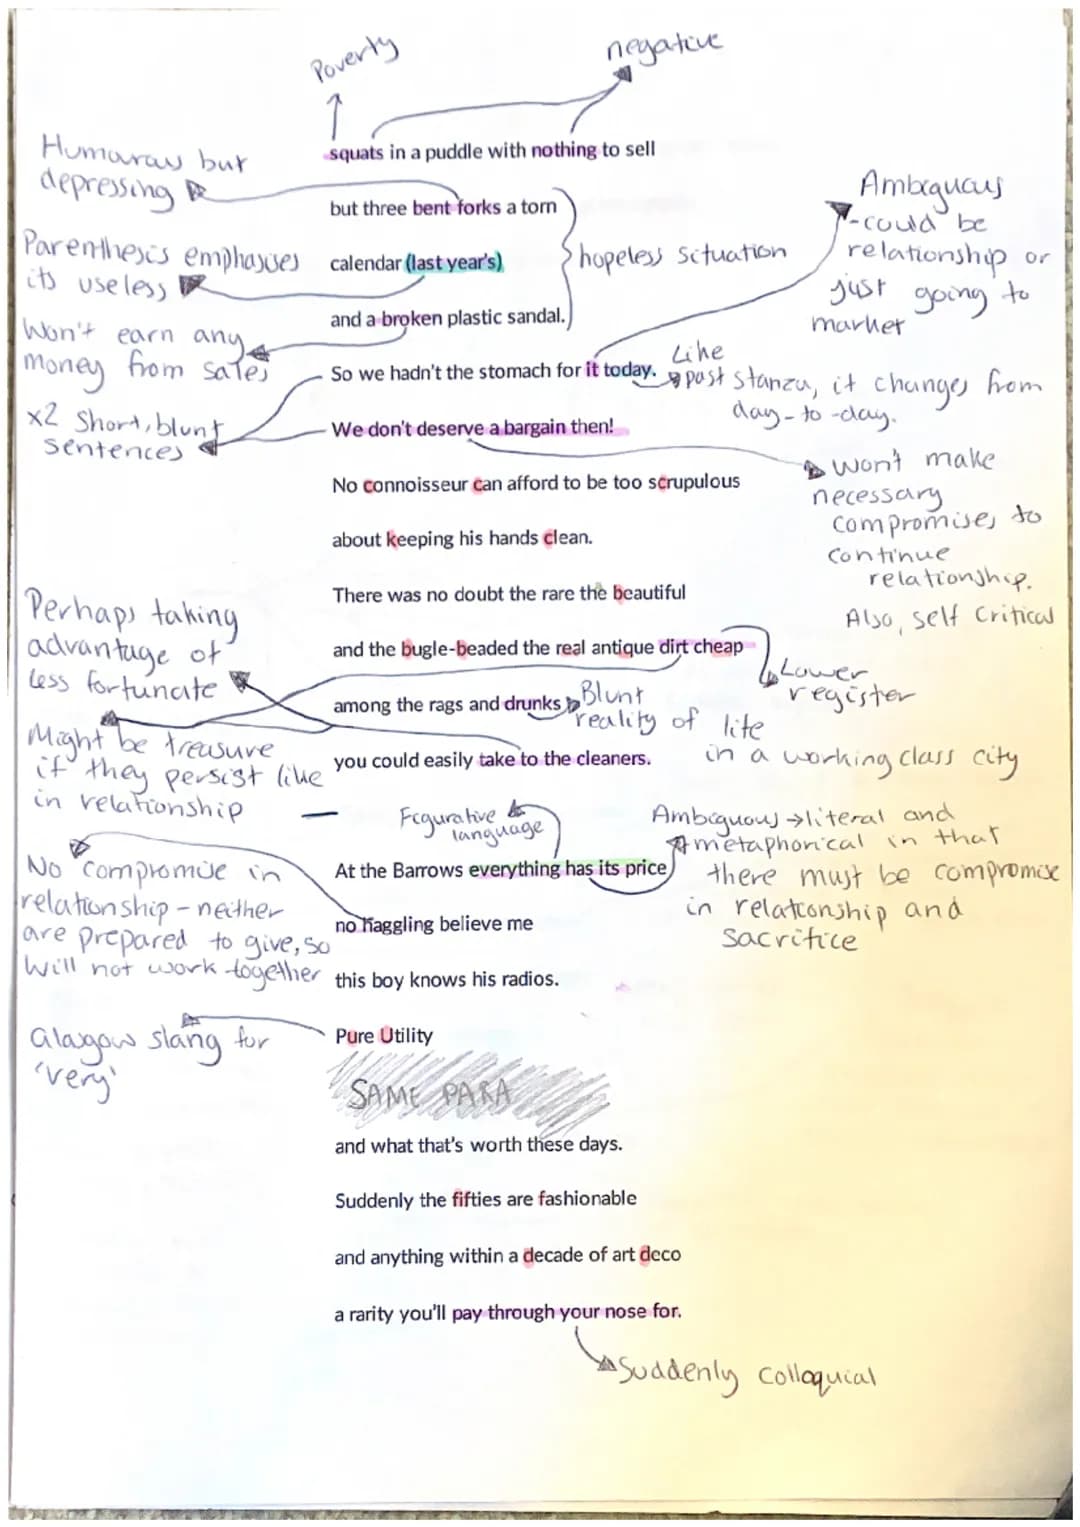 Poverty
negative
squats in a puddle with nothing to sell
Humorous but
depressing
but three bent forks a torn
Parenthesis emphasises
its useless
calendar (last year's)
hopeless situation
Ambiguous
-could be
relationship or
just going to
market
Won't earn any
money from sales
and a broken plastic sandal.
So we hadn't the stomach for it today.
Like
past stanza, it changes from
day-to-day.
x2 Short, blunt
sentences
We don't deserve a bargain then!
Won't make
necessary
compromises to
continue
relationship.
Also, self critical
No connoisseur can afford to be too scrupulous
about keeping his hands clean.
There was no doubt the rare the beautiful
Perhaps taking
advantage of
less fortunate
and the bugle-beaded the real antique dirt cheap
Lower
register
among the rags and drunks
Blunt
reality of life
in a working class city
Might be treasure
if they persist like
in relationship
you could easily take to the cleaners.
Figurative
language
Ambiguous → literal and
metaphorical in that
there must be compromise
in relationship and
sacrifice
At the Barrows everything has its price
No compromise in
relationship - neither
are prepared to give, so
will not work together
no haggling believe me
this boy knows his radios.
Glasgow slang for
'very'
Pure Utility
SAME PARA
and what that's worth these days.
Suddenly the fifties are fashionable
and anything within a decade of art deco
a rarity you'll pay through your nose for.
Suddenly colloquial